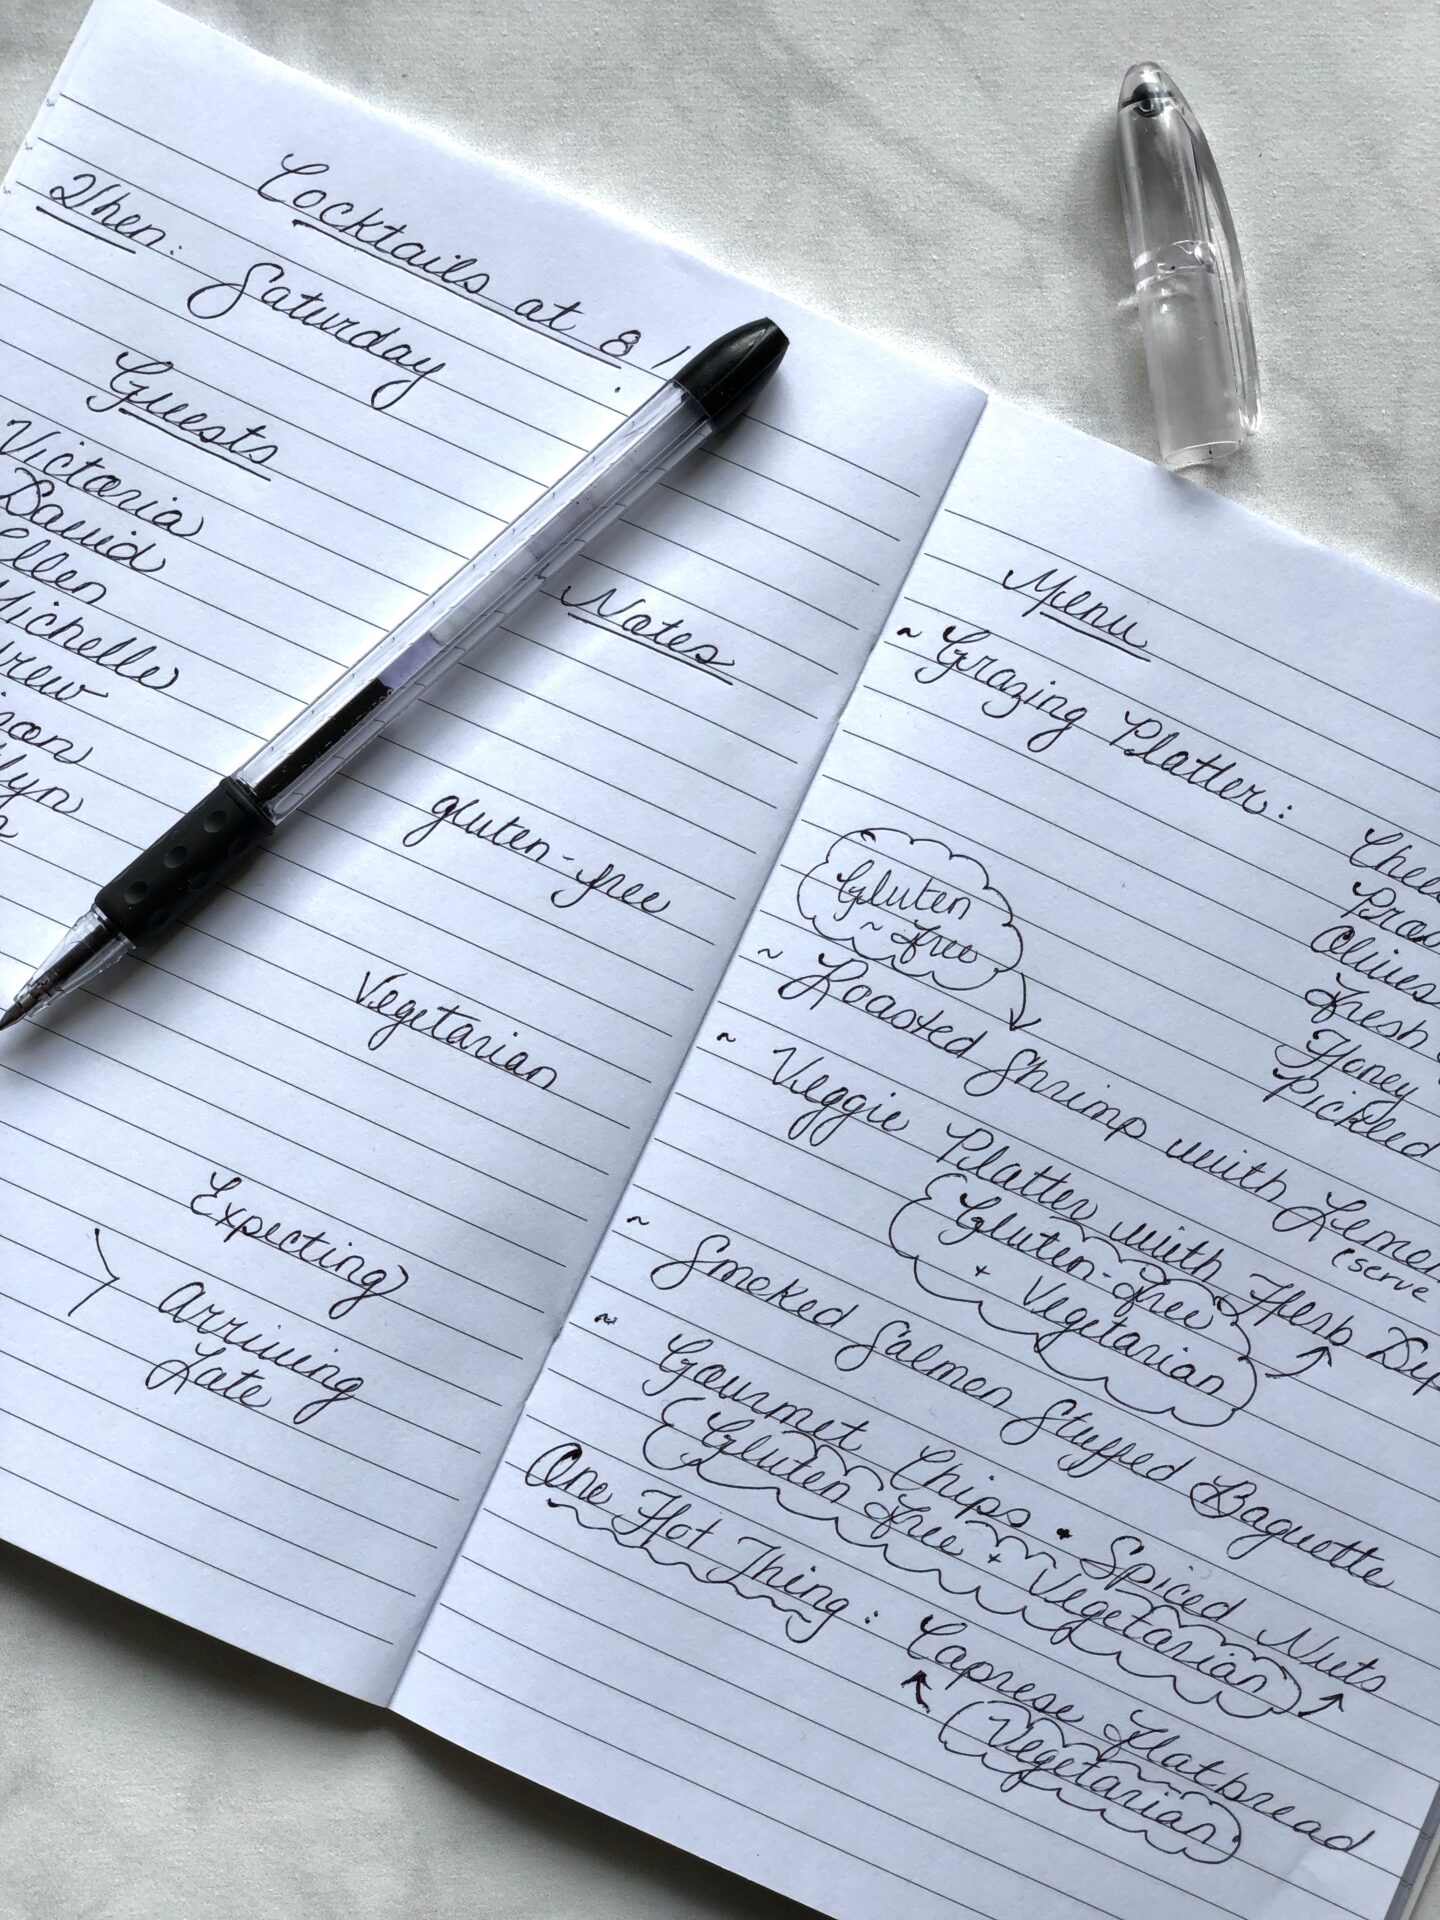 Cocktails at 8!
When:
Saturday
Guests
Victoria
David
Ellen
Michelle
Notes
gluten-free
Vegetarian
Expecting
arriving
Late
Menu
~ Grazing Platter:
Olives
Fresh
Honey
Pickled
Gluten
~ free
~ Roasted Shrimp with
(serve
~ Veggie Platter with Herb
Gluten-free
+ Vegetarian
~ Smoked Salmon Stuffed Baguette
~ Gourmet Chips • Spiced Nuts
Gluten free + Vegetarian
One Hot Thing: Caprese Flatbread
Vegetarian